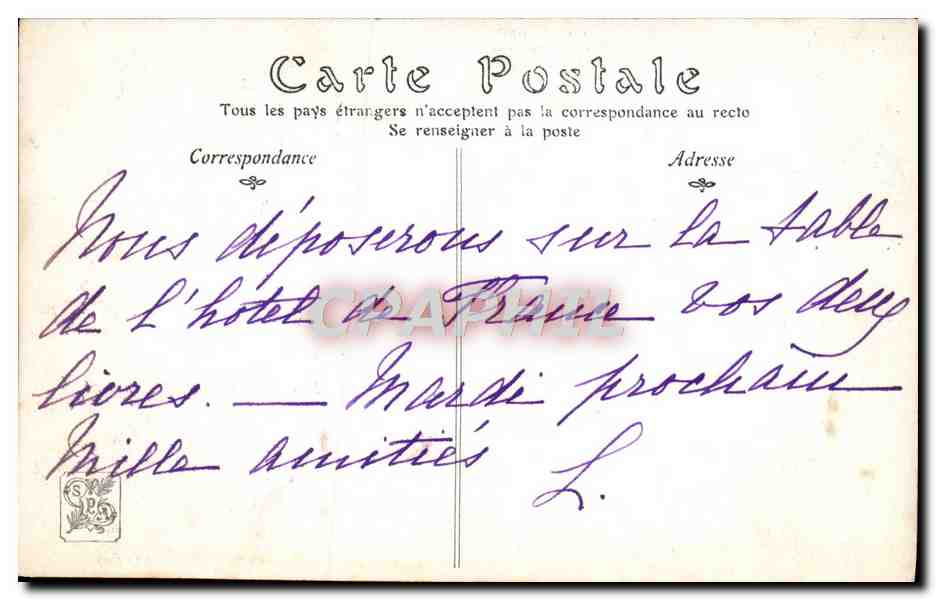 Carte Postale
Tous les pays étrangers n'acceptent pas la correspondance au recto
Se renseigner à la poste
Correspondance
Adresse
Nous déposerons sur la table
de l'hôtel de France vos deux
livres. — Mardi prochain
Mille amitiés
L.
CPAPHIL